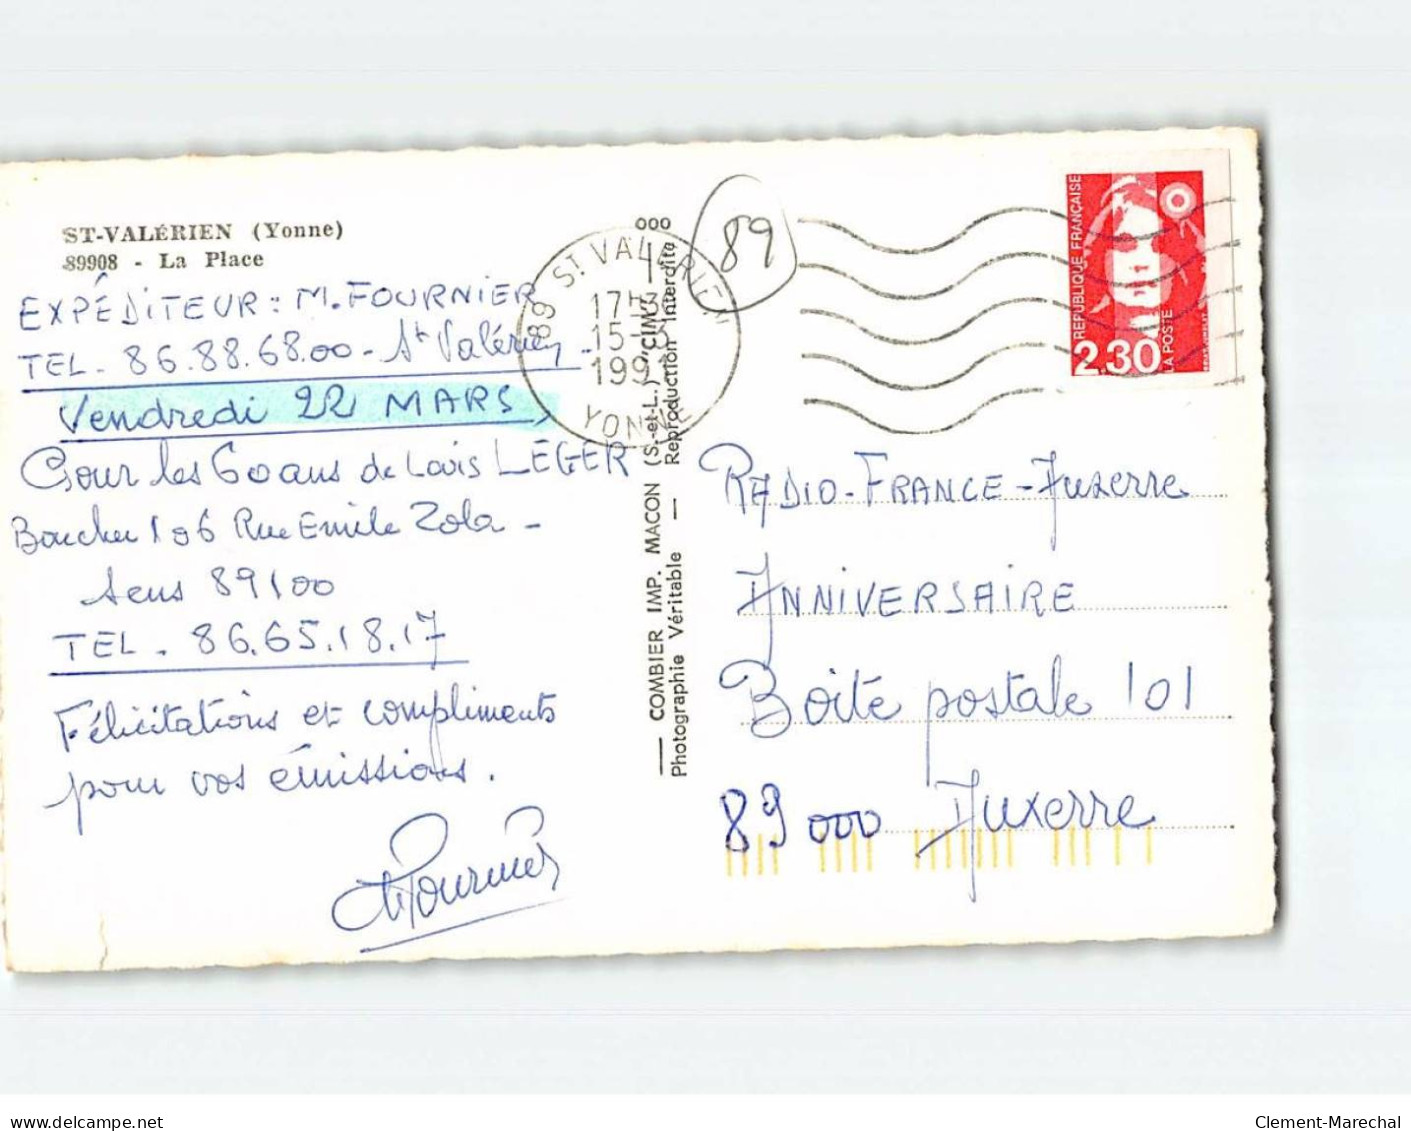 ST-VALÉRIEN (Yonne)
89908 - La Place
EXPÉDITEUR : M. FOURNIER
TEL - 86.88.68.00 - St Valérien -
Vendredi 22 MARS,
Pour les 60 ans de Louis LEGER
Boucher 106 Rue Emile Zola -
Sens 89100
TEL. 86.65.18.17
Félicitations et compliments
pour vos émissions.
Fournier
COMBIER IMP. MACON (S.-et-L.) "CIM"
Photographie Véritable — Reproduction Interdite
ooo
89
89 ST VALERIEN
17H
15-3
1991
YONNE
REPUBLIQUE FRANÇAISE
2,30
LA POSTE
RADIO-FRANCE-Auxerre
ANNIVERSAIRE
Boite postale 101
89000 Auxerre
www.delcampe.net
Clement-Marechal